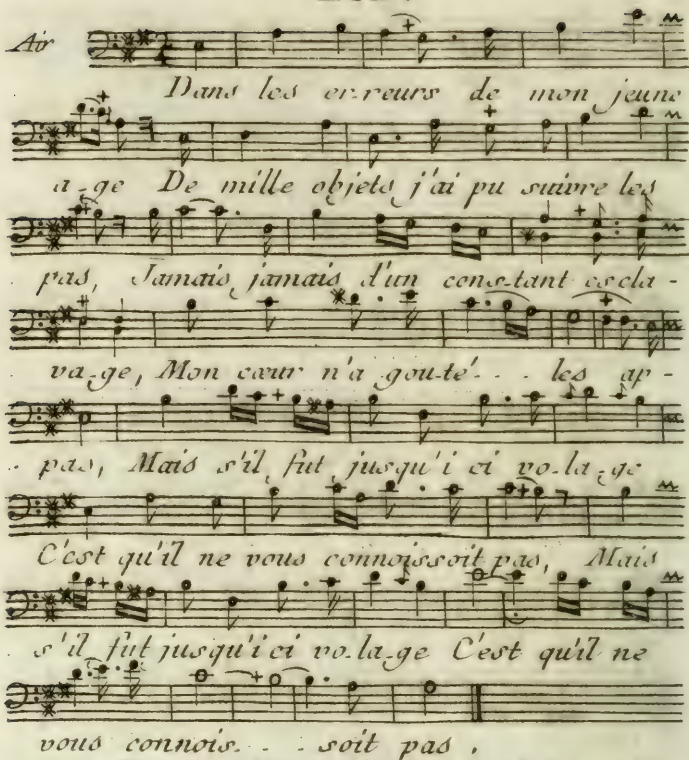 Air
Dans les er-reurs de mon jeune
a-ge De mille objets j'ai pu suivre les
pas, Jamais jamais d'un cons-tant escla-
va-ge, Mon cœur n'a gou-té - - - les ap-
pas, Mais s'il fut jusqu'i ci vo-la-ge
C'est qu'il ne vous connoissoit pas, Mais
s'il fut jusqu'i ci vo-la-ge C'est qu'il ne
vous connois - - - soit pas.